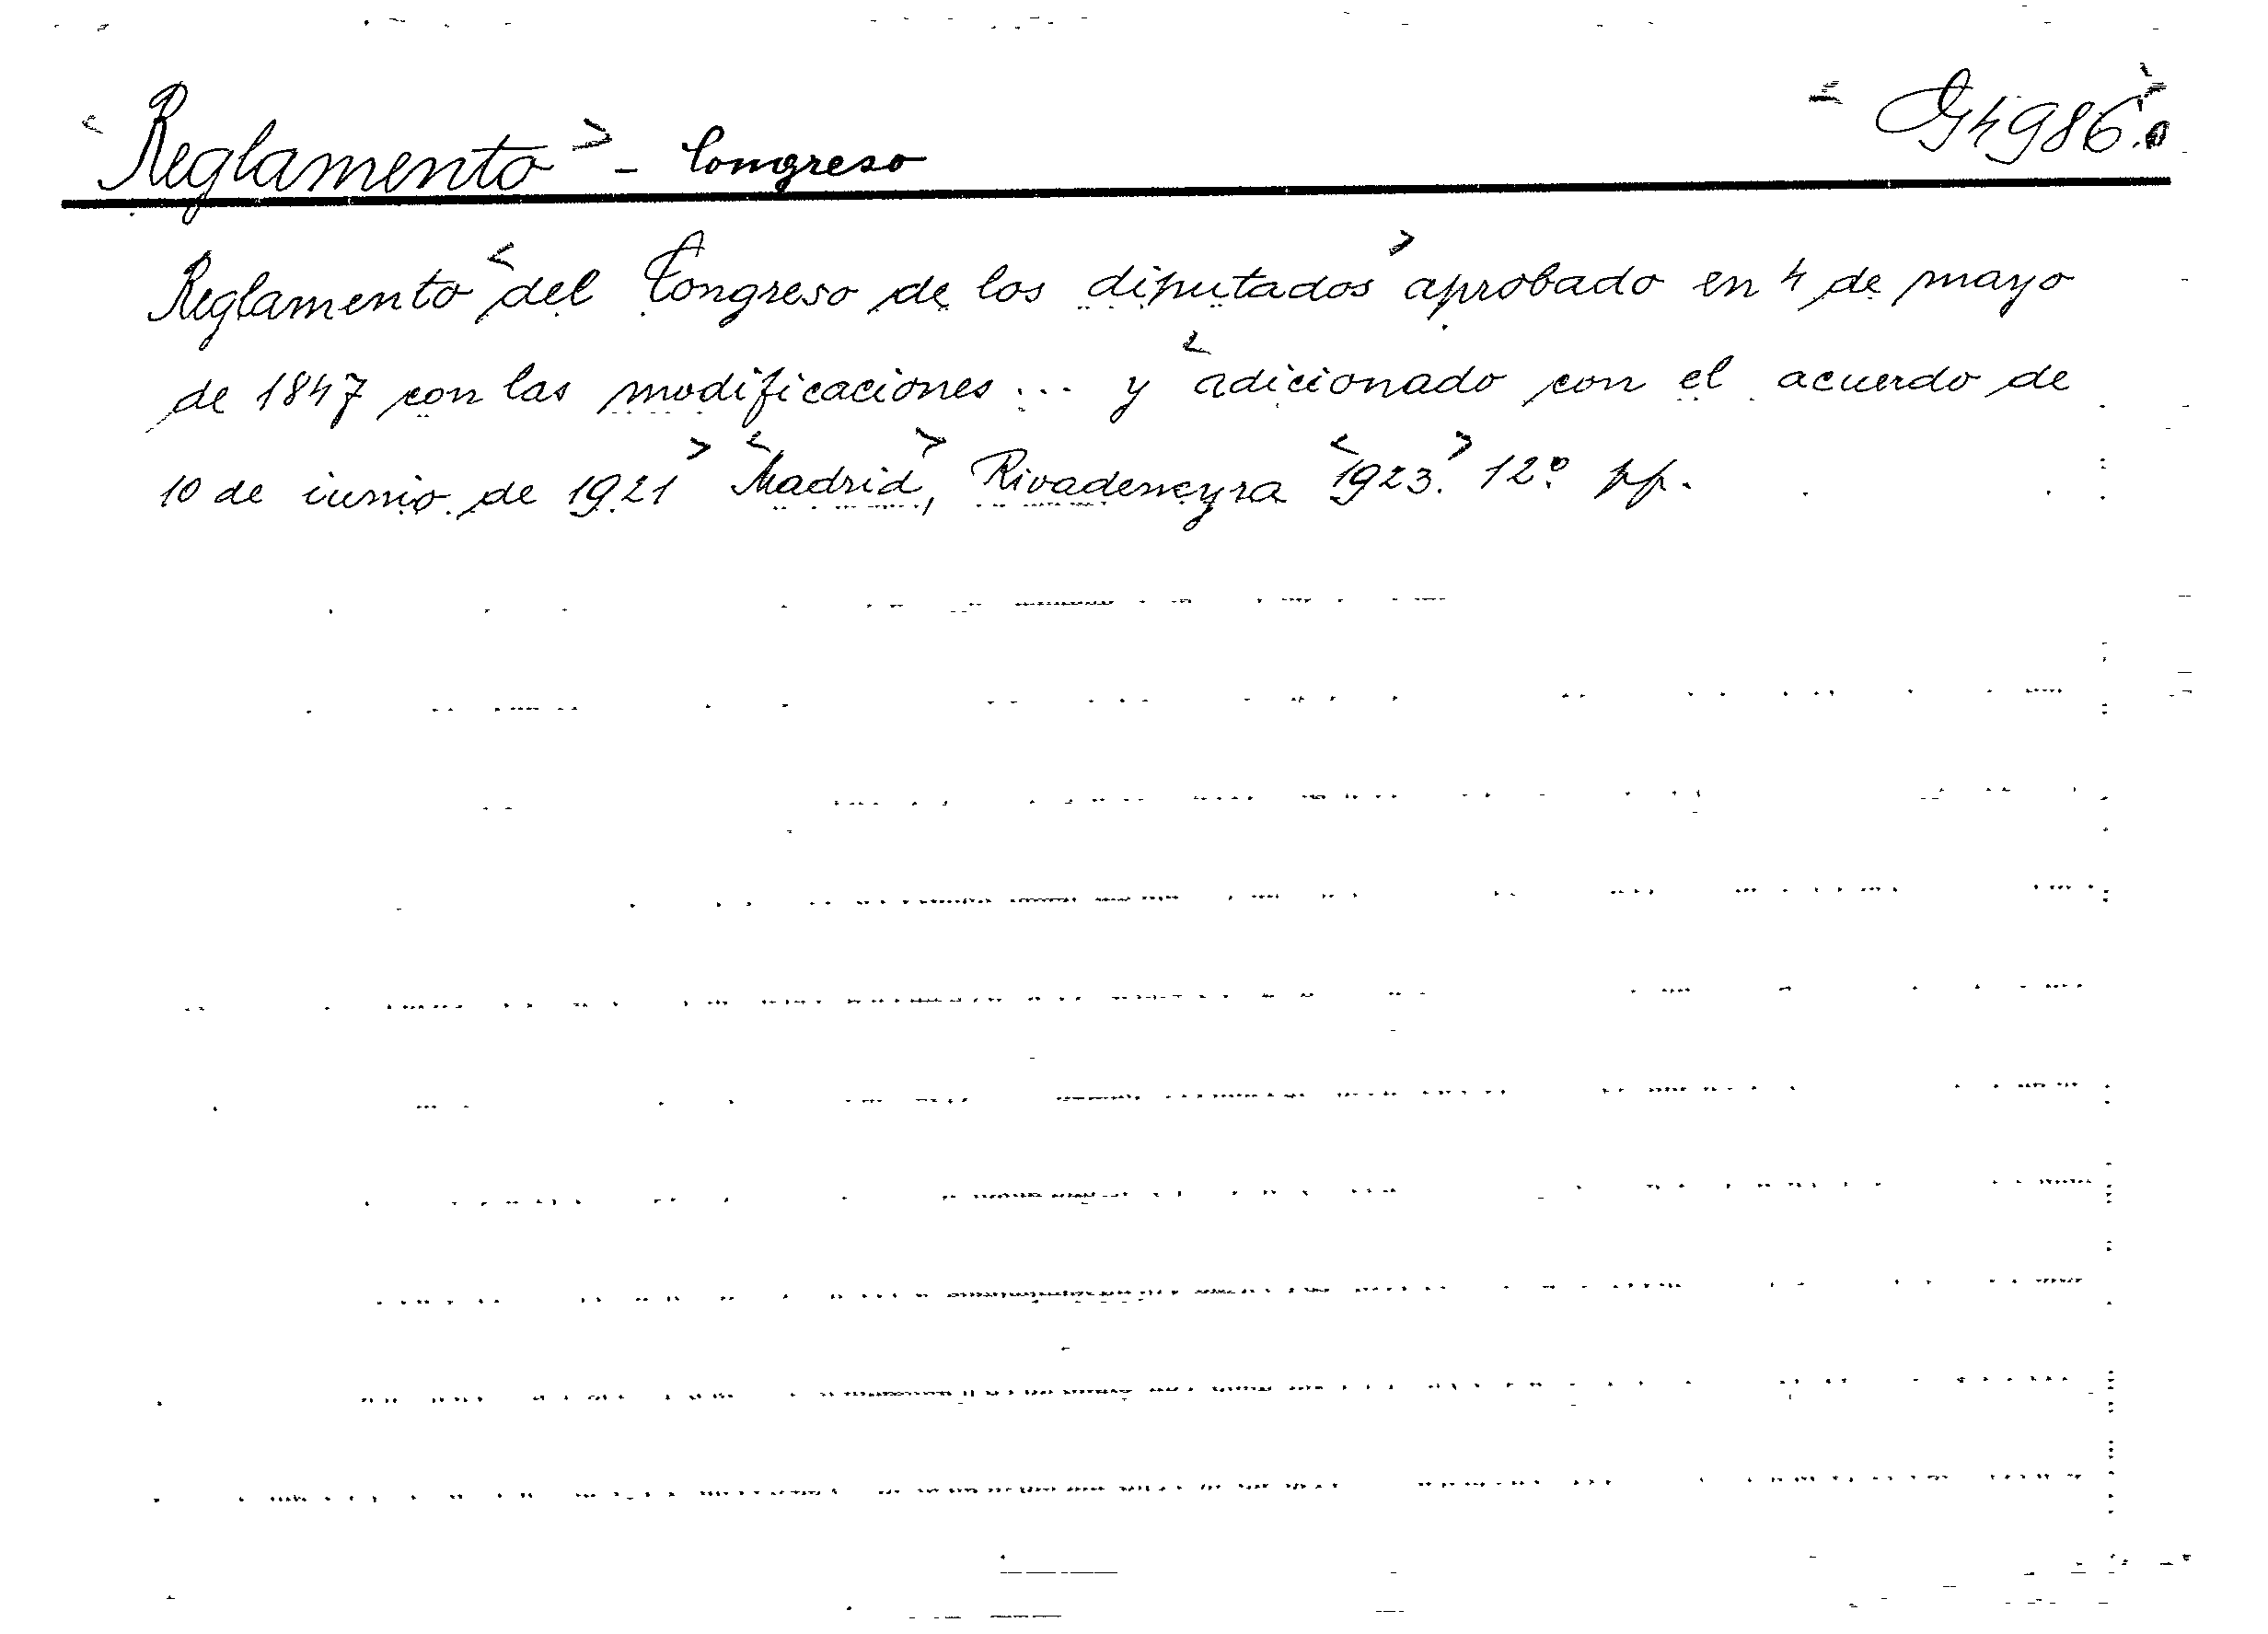 <Reglamento> - Congreso
G4986.
Reglamento <del Congreso de los diputados> aprobado en 4 de mayo
de 1847 con las modificaciones ... y <adicionado con el acuerdo de
10 de iunio de 1921> <Madrid>, Rivadeneyra <1923.> 12º pp.